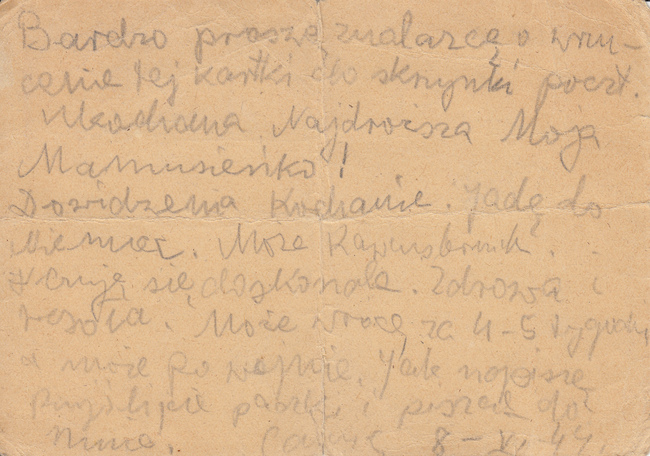 Bardzo proszę znalazcę o wrzu-
cenie tej kartki do skrzynki poczt.
Ukochana Najdroższa Moja
Mamusieńko!
Dowidzenia Kochanie. Jadę do
Niemiec. Może
czuję się doskonale. Zdrowa i
wesoła. Może wrócę za 4-5 tygodni,
a może po wojnie. Jak napiszę
paczkę i piszcie do
mnie. 8-XI 44.